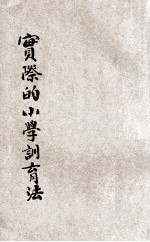 實際的小學訓育法